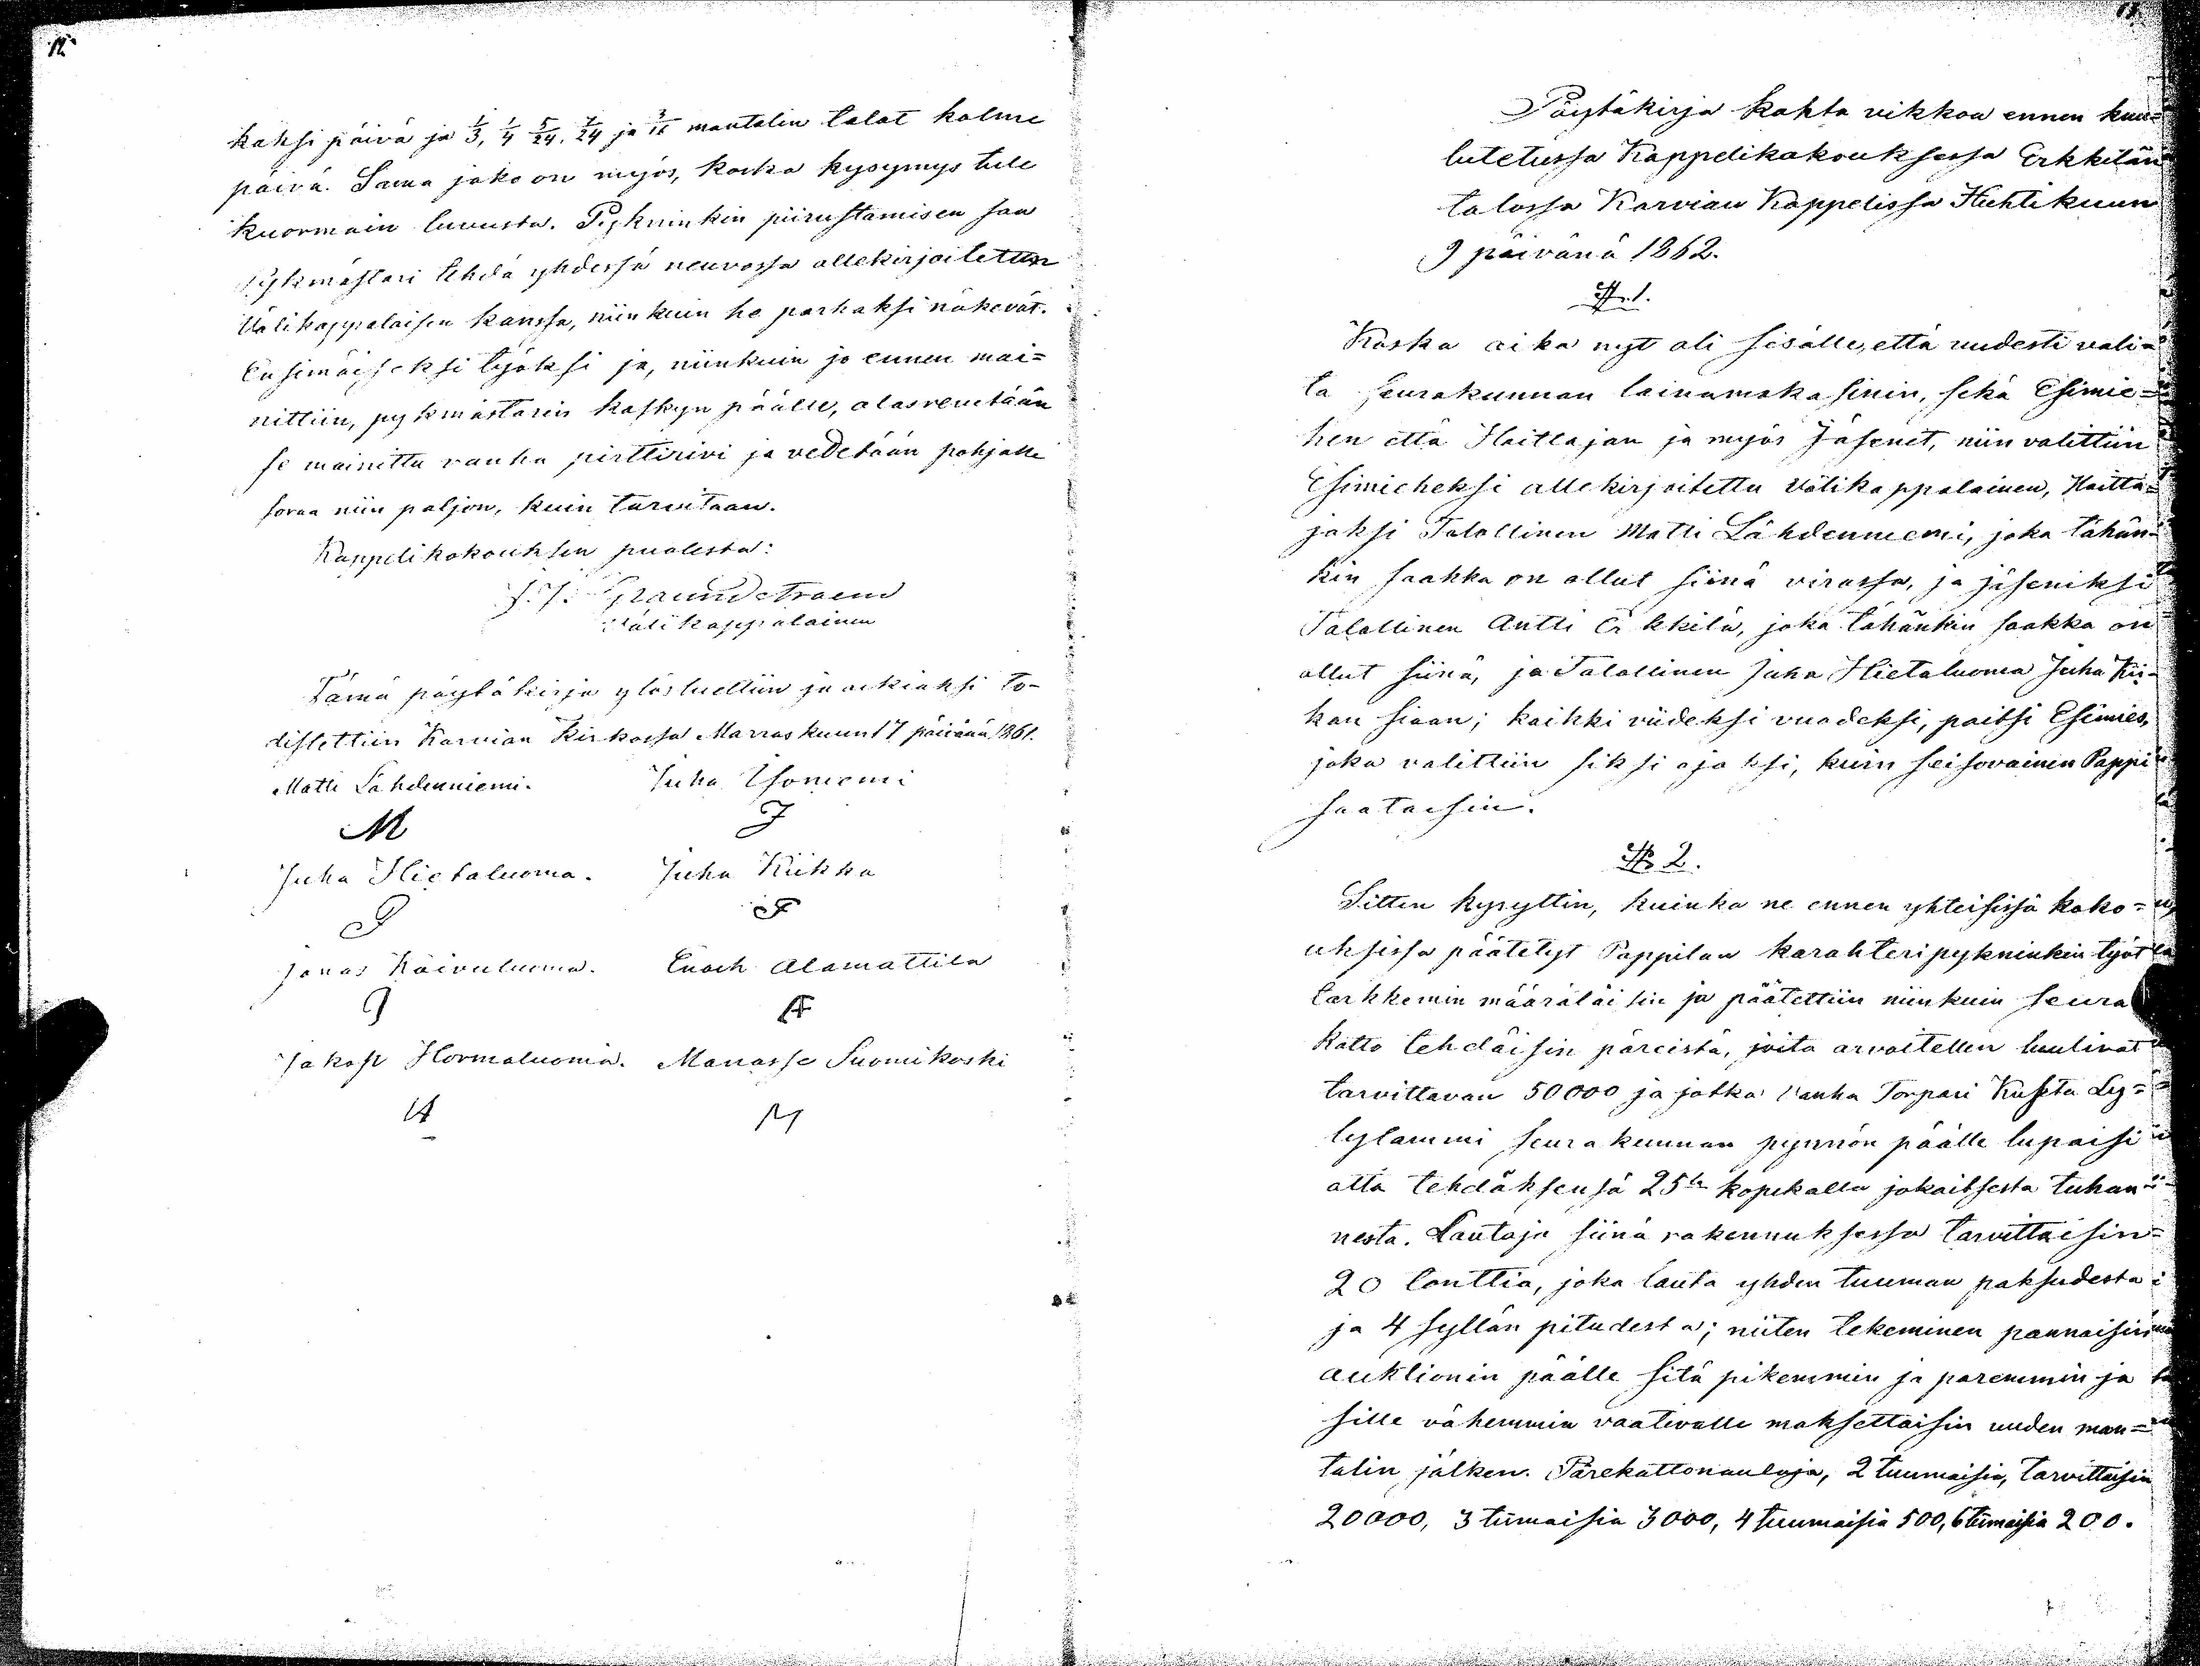 12.
kaksi päivä ja 1/3, 1/4 5/24, 7/24 ja 3/16 mantalin talot kolme
päivä. Sama jako on myös, koska kysymys tule
kuormain luvusta. Pykninkin piirustamisen saa
Pykmästari tehdä yhdessä neuvossa allekirjoitettun
Välikappalaisen kanssa, niinkuin he parhaksi näkevät.
Ensimäiseksi työksi ja, niinkuin jo ennen mai=
nittiin, pykmästarin kaskyn päälle, alasrevetään
se mainittu vanha pirttirivi ja vedetään pohjalle
soraa niin paljon, kuin tarvitaan.
Kappelikokouksen puolesta:
Välikappalainen
Tämä pöytäkirja ylösluettiin ja oikiaksi to-
distettiin Karvian Kirkossa Marraskuun 17 päivänä 1861.
Matti Lähdenniemi. Juha Isoniemi
M J
Juha Hietaluoma. Juha Kiikka
J
Jonas Koivuluoma. Enoch Alamattila
J
Jakop Hormaluoma. Manasse Suomikoski
M
13.
Pöytäkirja kahta vikkoa ennen kuu=
lutetussa Kappelikokouksessa Erkkilän
talossa Karvian Kappelissa Huhtikuun
9 päivänä 1862.
§ 1.
Koska aika nyt oli sisälle, että uudesti vali=
ta seurakunnan lainamakasinin, sekä Esimie=
hen että Hoittajan ja myös Jäsenet, niin valittiin
Esimieheksi allekirjoitettu Välikappalainen, Hoitta=
jaksi Talollinen Matti Lähdenniemi, joka tähän=
kin saakka on ollut siinä virassa, ja jäseniksi
Talollinen Antti Erkkilä, joka tähänkin saakka on
ollut siinä, ja Talollinen Juha Hietaluoma Juha Kii=
kan siaan; kaikki viideksi vuodeksi, paitsi Esimies,
joka valittiin siksi ajaksi, kuin seisovainen Pappi
saataisin.
§ 2.
Sitten kysyttin, kuinka ne ennen yhteisissä koko=
uksissa päätetyt Pappilan karahteripykninkin työt
tarkkemin määrätäisin ja päätettiin niinkuin seura
Katto tehdäisin päreistä, joita arvoitellen luulivat
tarvittavan 50000 ja jotka vanha Torpari Kustta Ly=
lylammi seurakunnan pynnön päälle lupaisi
otta tehdäksensä 25 kopekalla jokaitsesta tuhan=
nesta. Lautoja siinä rakennuksessa tarvittaisin
20 tonttia, joka lauta yhden tuuman paksudesta
ja 4 syllän pitudesta; niiten tekeminen pannaisin
auktionin päälle sitä pikemmin ja paremmin ja
sille vähemmin vaativalle maksettaisin uuden man=
talin jälken. Pärekattonauloja, 2 tuumaisia, tarvittaisin
20000, 3 tumaisia 3000, 4 tuumaisia 500, 6 tumaisia 200.